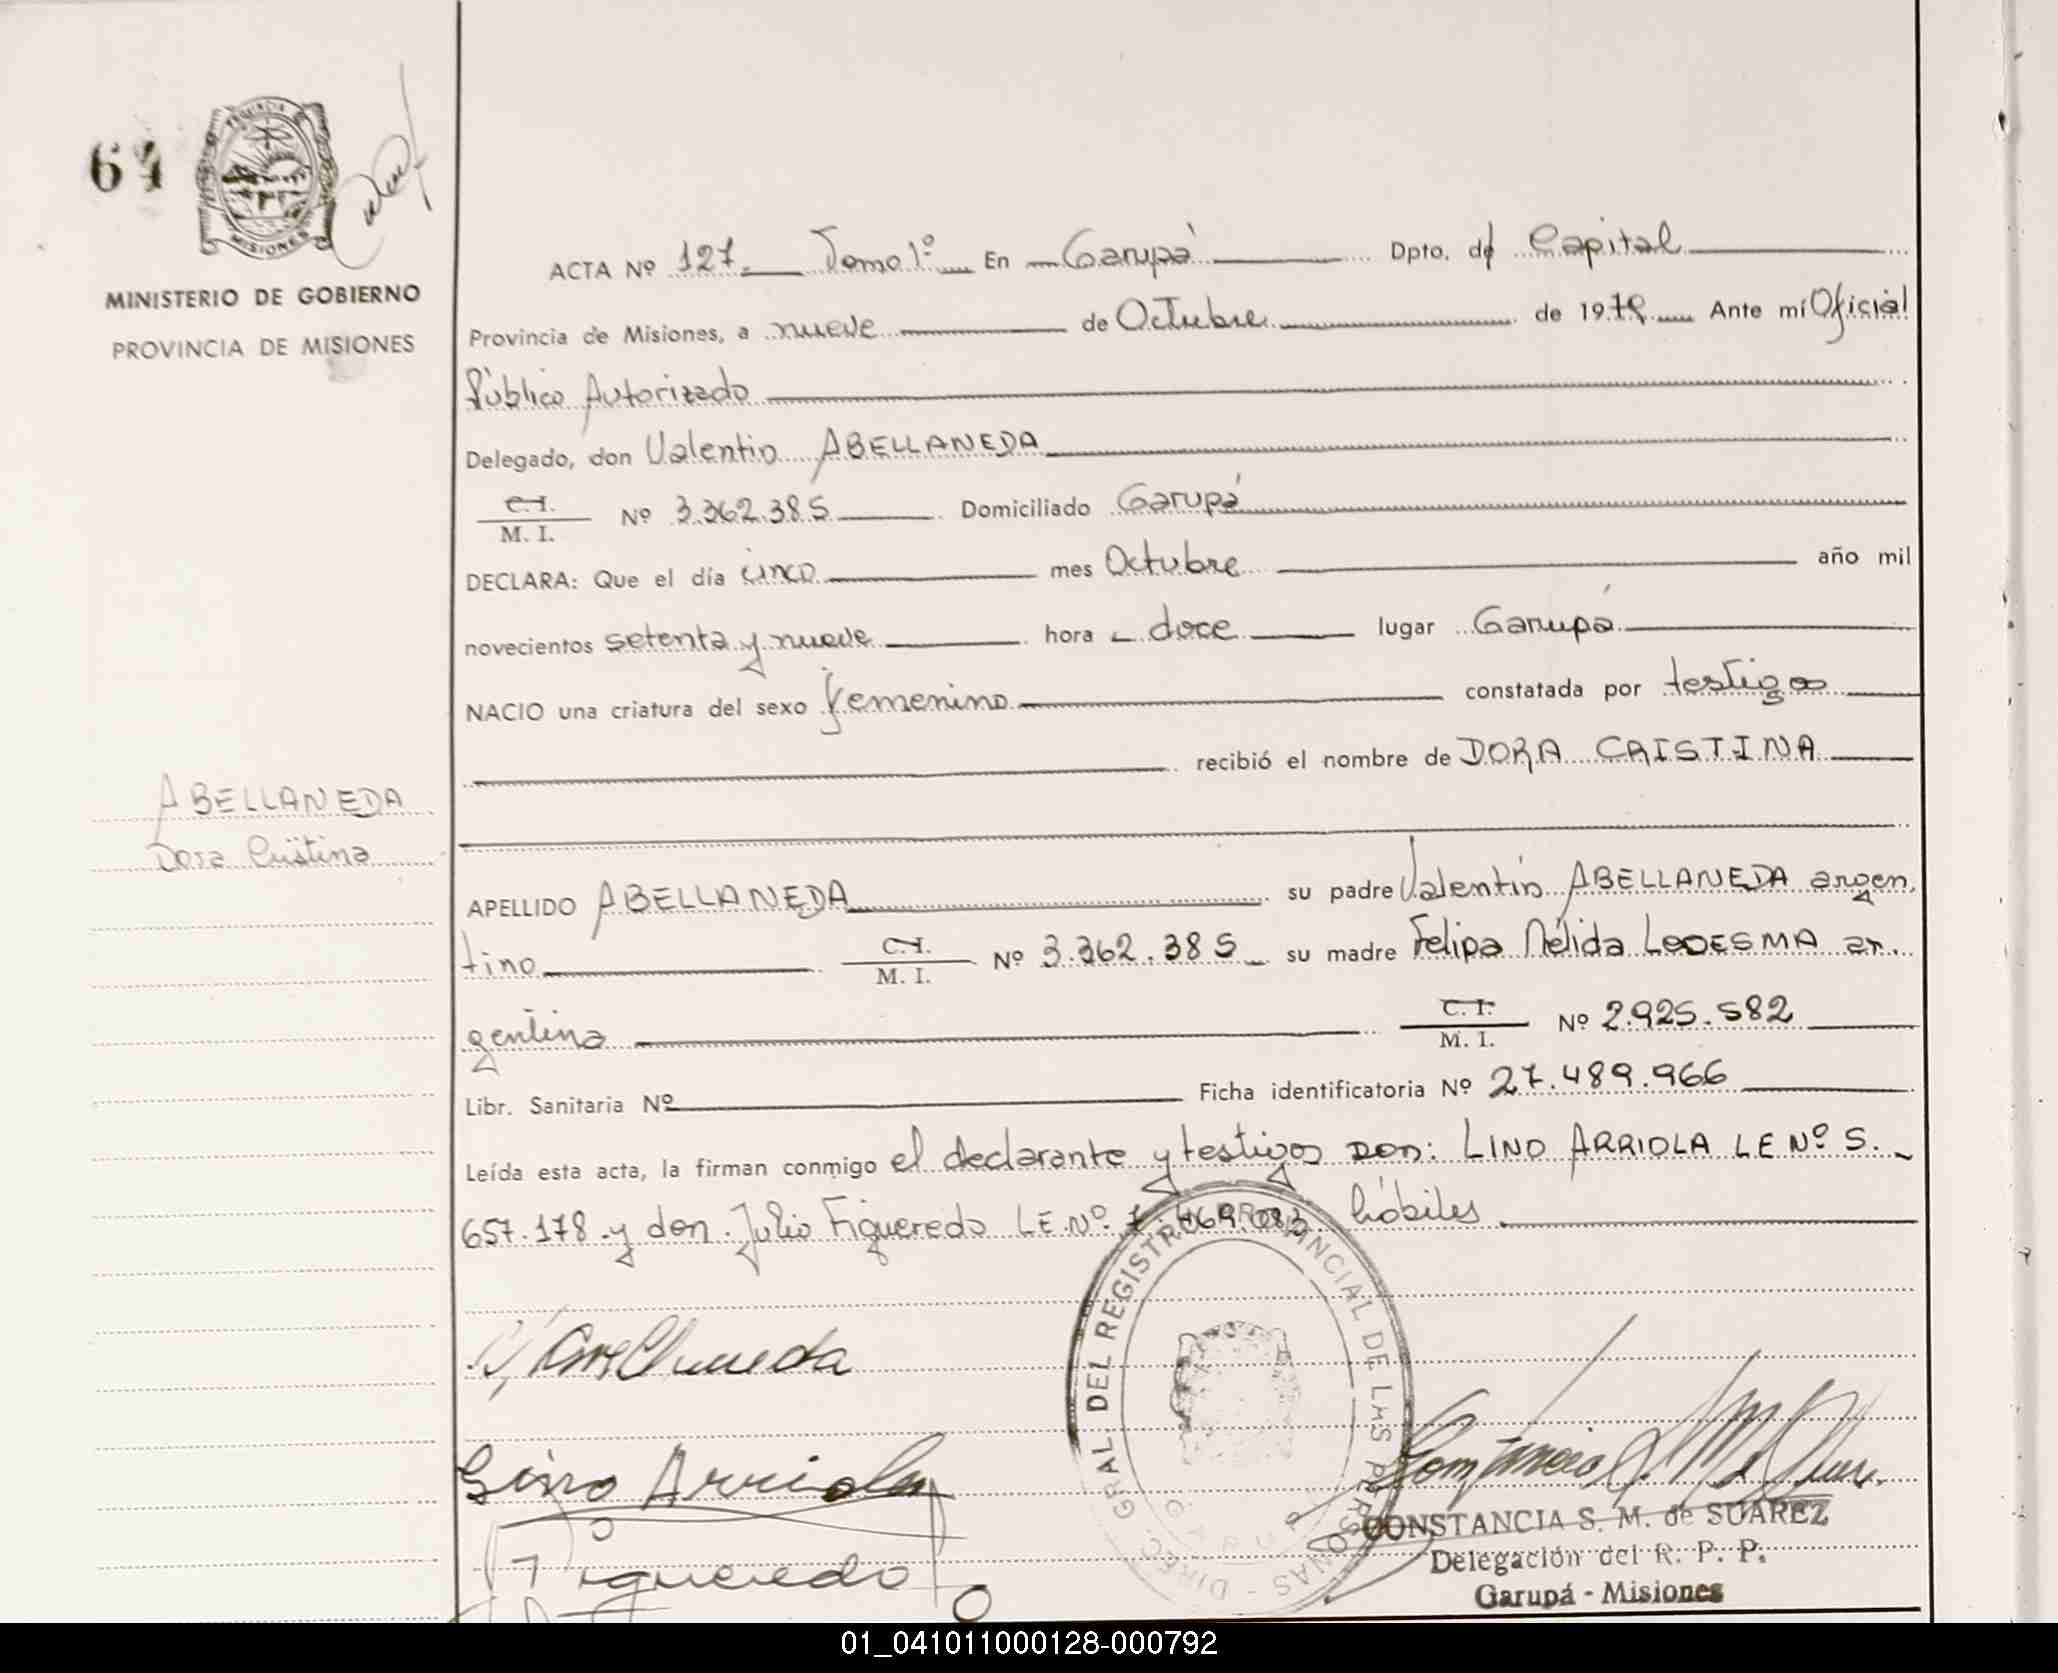 64
PROVINCIA
MISIONES
MINISTERIO DE GOBIERNO
PROVINCIA DE MISIONES
ABELLANEDA
Dora Cristina
ACTA Nº 127. Tomo 1º En Garupá Dpto. de Capital
Provincia de Misiones, a nueve de Octubre de 1979 Ante mí Oficial
Público Autorizado
Delegado, don Valentin ABELLANEDA
C.I. M. I. Nº 3.362.385 Domiciliado Garupá
DECLARA: Que el día cinco mes Octubre año mil
novecientos setenta y nueve hora doce lugar Garupá
NACIO una criatura del sexo femenino constatada por testigos
recibió el nombre de DORA CRISTINA
APELLIDO ABELLANEDA su padre Valentín ABELLANEDA argen
tino C.I. M. I. Nº 3.362.385 su madre Felipa Nélida LEDESMA ar.
gentina C.I. M. I. Nº 2.925.582
Libr. Sanitaria Nº Ficha identificatoria Nº 27.489.966
Leída esta acta, la firman conmigo el declarante y testigos Don: LINO ARRIOLA LE Nº 5.
657.178 y don Julio Figueredo LE.Nº. 7.469.083 hábiles
V. Avellaneda
Lino Arriola
J Figueredo
DIREC. GRAL DEL REGISTRO PROVINCIAL DE LAS PERSONAS
CONSTANCIA S. M. de SUAREZ
Delegación del R. P. P.
Garupá - Misiones
01_041011000128-000792